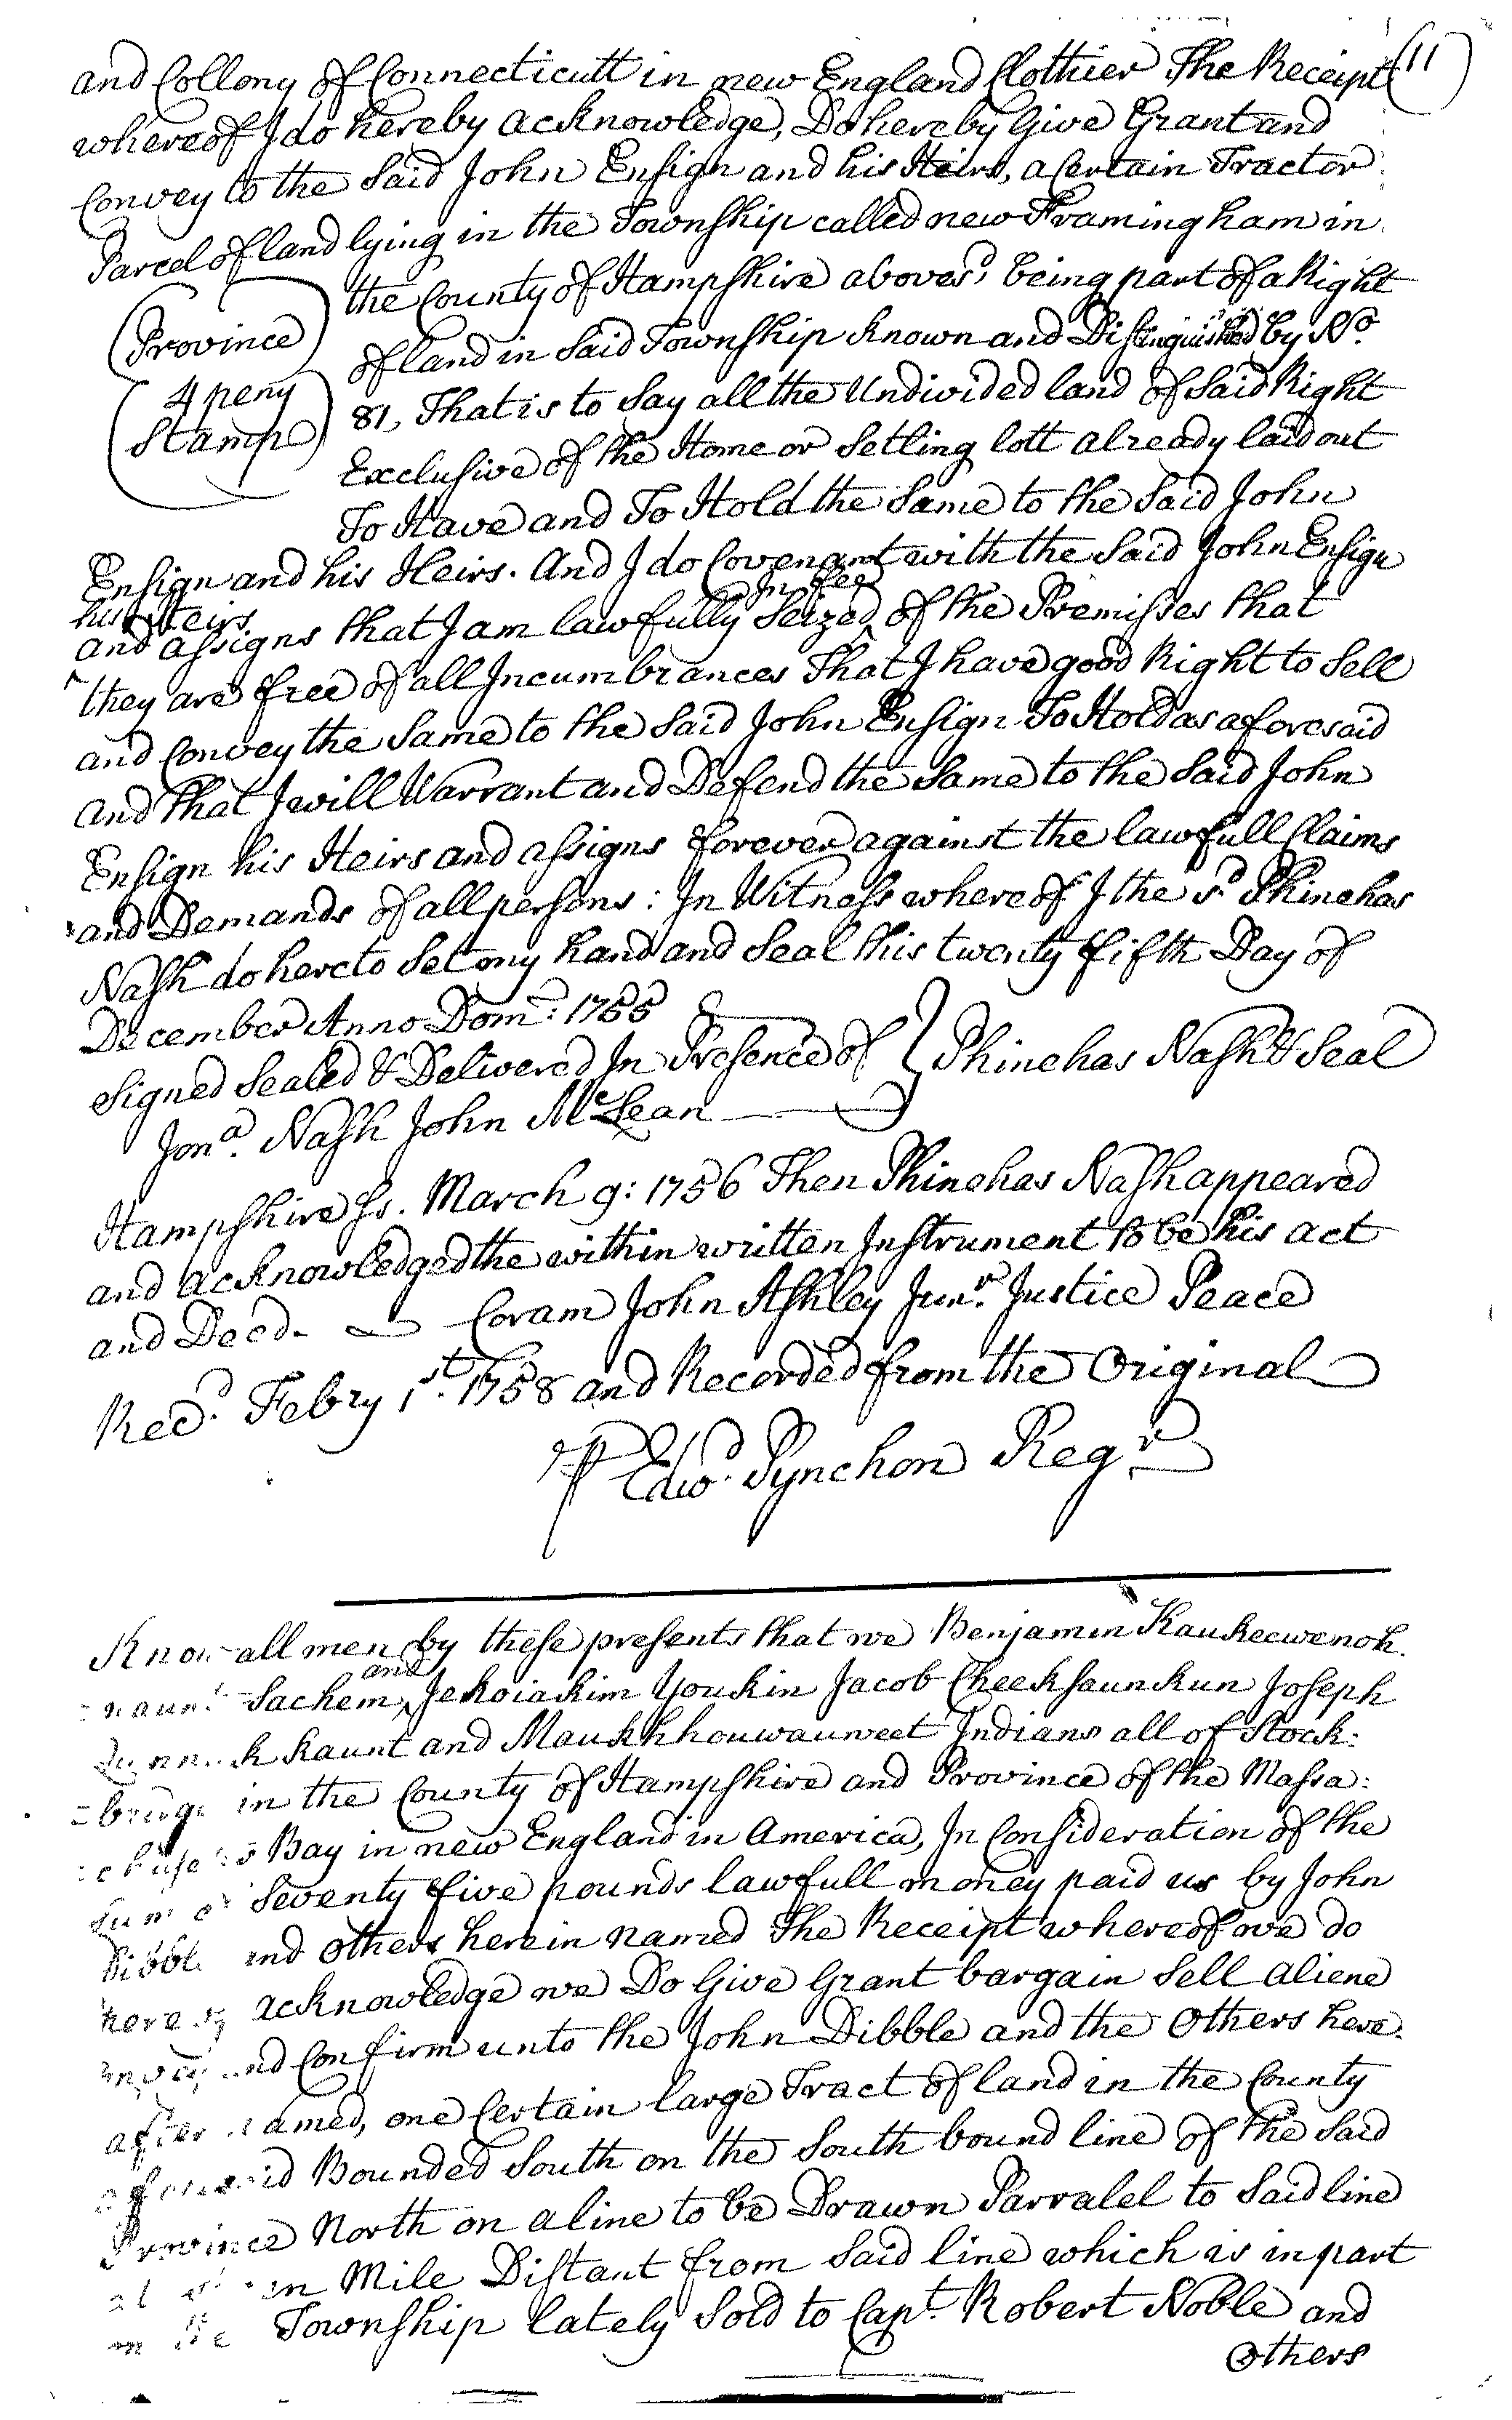 (11)
and Collony of Connecticutt in new England Clothier The Receipt
whereof I do hereby acknowledge, Do hereby Give Grant and
Convey to the Said John Ensign and his Heirs, a Certain Tract or
Parcel of land lying in the Township called new Framingham in
the County of Hampshire aboves.d being part of a Right
of land in Said Township known and Distinguished by No.
81, That is to Say all the Undivided land of Said Right
Exclusive of the Home or Setling lott already laid out
To Have and To Hold the Same to the Said John
Province
4 peny
Stamp
Ensign and his Heirs. And I do Covenant with the Said John Ensign
his Heirs In fee
and assigns that I am lawfully Seized of the Premisses that
they are free of all Incumbrances That I have good Right to Sell
and Convey the Same to the Said John Ensign To Hold as aforesaid
and that I will Warrant and Defend the Same to the Said John
Ensign his Heirs and assigns forever against the lawfull Claims
and Demands of all persons: In Witness whereof I the s.d Phinehas
Nash do hereto Set my hand and Seal this twenty fifth Day of
December Anno Dom: 1755
Signed Sealed & Delivered In Presence of } Phinehas Nash & Seal
Jon.a Nash John McLean
Hampshire Ss. March 9: 1756 Then Phinehas Nash appeared
and acknowledged the within written Instrument to be his act
and Deed. Coram John Ashley Jun.r Justice Peace
Rec.d Febry 1st. 1758 and Recorded from the Original
P Edw.d Pynchon Reg.r
Know all men by these presents that we Benjamin Kaukeewenoh
and
naunt Sachem Jehoiakim Youkin Jacob Cheeksaunkun Joseph
kaunt and Maukhhouwauweet Indians all of Stock:
=bridge in the County of Hampshire and Province of the Massa:
=chusetts Bay in new England in America, In Consideration of the
Sum of Seventy five pounds lawfull money paid us by John
Dibble and others herein named The Receipt whereof we do
hereby acknowledge we Do Give Grant bargain Sell aliene
convey and Confirm unto the John Dibble and the Others here
after named, one Certain large Tract of land in the County
aforesaid Bounded South on the South bound line of the Said
Province North on a line to be Drawn Parralel to Said line
Mile Distant from Said line which is in part
on the Township lately Sold to Capt. Robert Noble and
Others